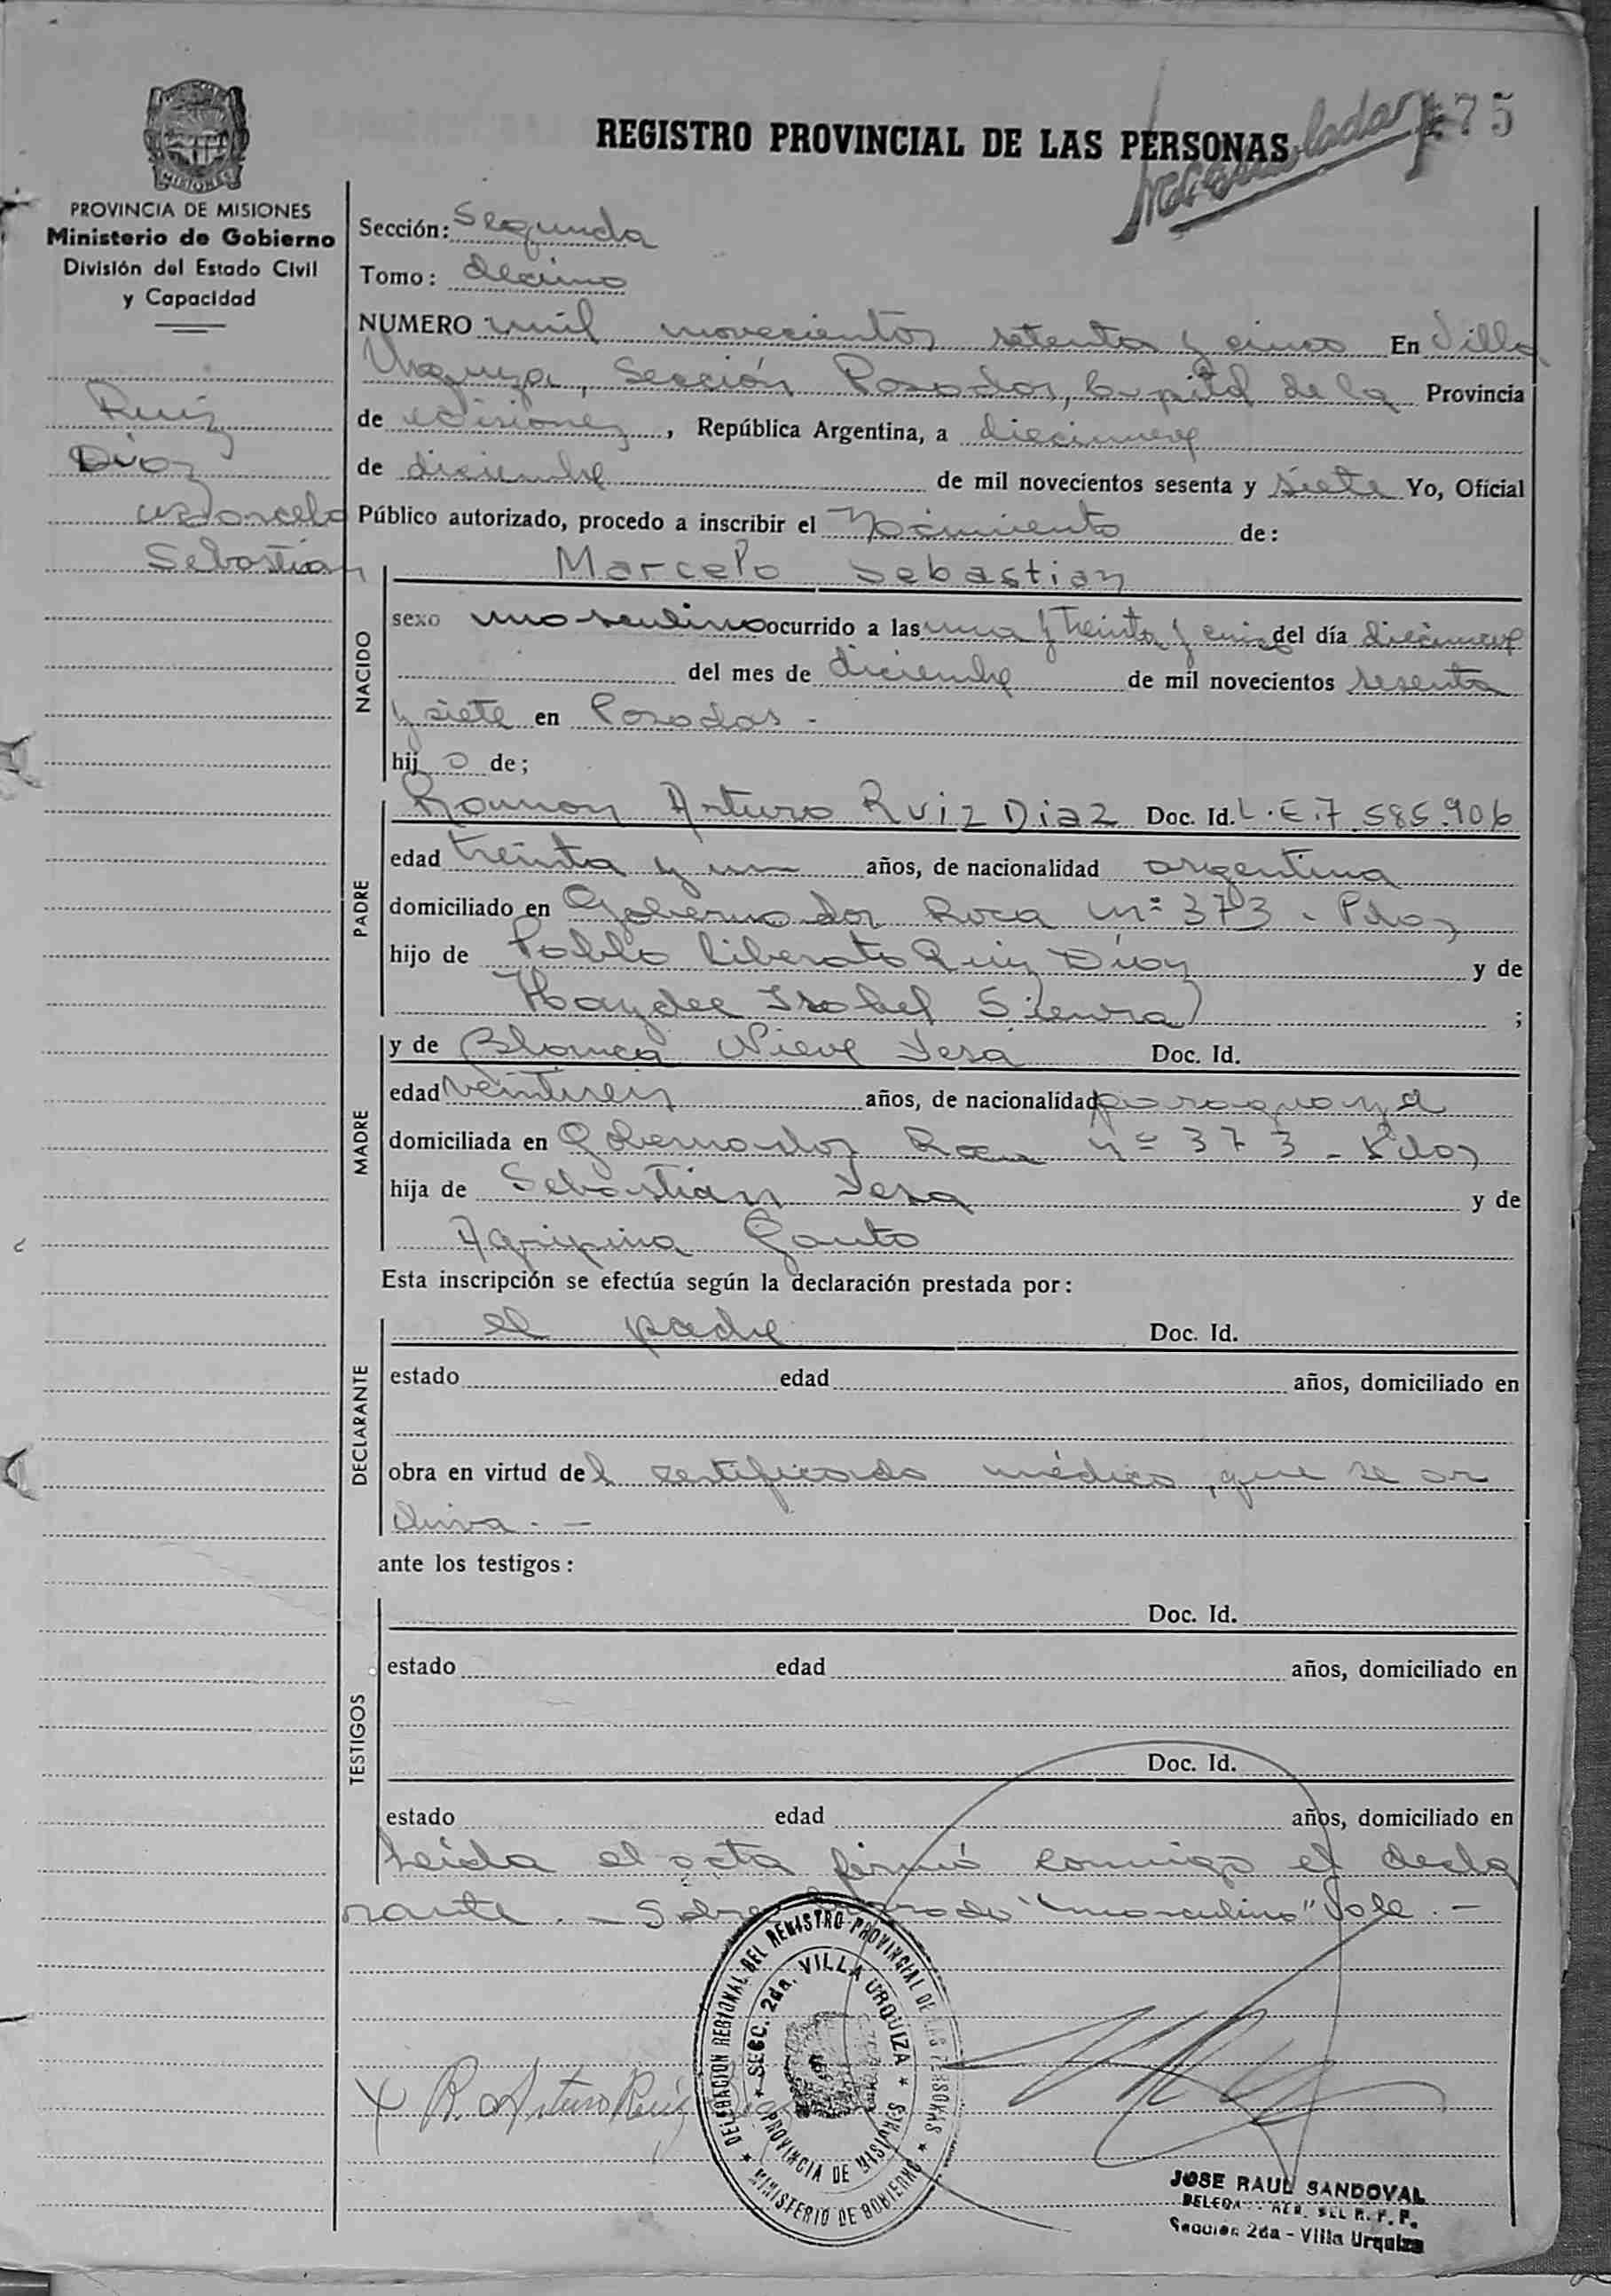 REGISTRO PROVINCIAL DE LAS PERSONAS
75
PROVINCIA DE MISIONES
Ministerio de Gobierno
División del Estado Civil
y Capacidad
Ruiz
Diaz
Marcelo
Sebastian
Sección: Segunda
Tomo: decimo
NUMERO mil novecientos setenta y cinco En Villa
Urquiza, Sección Posadas, Capital de la Provincia
de Misiones, República Argentina, a diecinueve
de diciembre de mil novecientos sesenta y siete Yo, Oficial
Público autorizado, procedo a inscribir el Nacimiento de:
NACIDO
Marcelo Sebastian
sexo masculino ocurrido a las una y treinta y cinco del día diecinueve
del mes de diciembre de mil novecientos sesenta
y siete en Posadas -
hij o de;
PADRE
Ramon Arturo Ruiz Diaz Doc. Id. L.E.7.585.906
edad treinta y un años, de nacionalidad argentina
domiciliado en Gobernador Roca nº 373 - Pdas
hijo de Pablo Liberato Ruiz Diaz y de
Haydee Isabel Sienra ;
MADRE
y de Blanca Nieve Jesa Doc. Id.
edad veintiseis años, de nacionalidad paraguaya
domiciliada en Gobernador Roca nº 373 - Pdas
hija de Sebastian Jesa y de
Agripina Gauto
Esta inscripción se efectúa según la declaración prestada por:
DECLARANTE
el padre Doc. Id.
estado edad años, domiciliado en
obra en virtud del certificado médico, que se ar
chiva. -
ante los testigos:
TESTIGOS
Doc. Id.
estado edad años, domiciliado en
Doc. Id.
estado edad años, domiciliado en
Leida el acta firmó conmigo el decla
rante. - Sobre borrado "masculino" Vale. -
DELEGACION REGIONAL DEL REGISTRO PROVINCIAL DE LAS PERSONAS
SECC. 2da. VILLA URQUIZA
PROVINCIA DE MISIONES
MINISTERIO DE GOBIERNO
X R. Arturo Ruiz Diaz
JOSE RAUL SANDOVAL
DELEGA REG. DEL R.P.P.
Sección 2da - Villa Urquiza